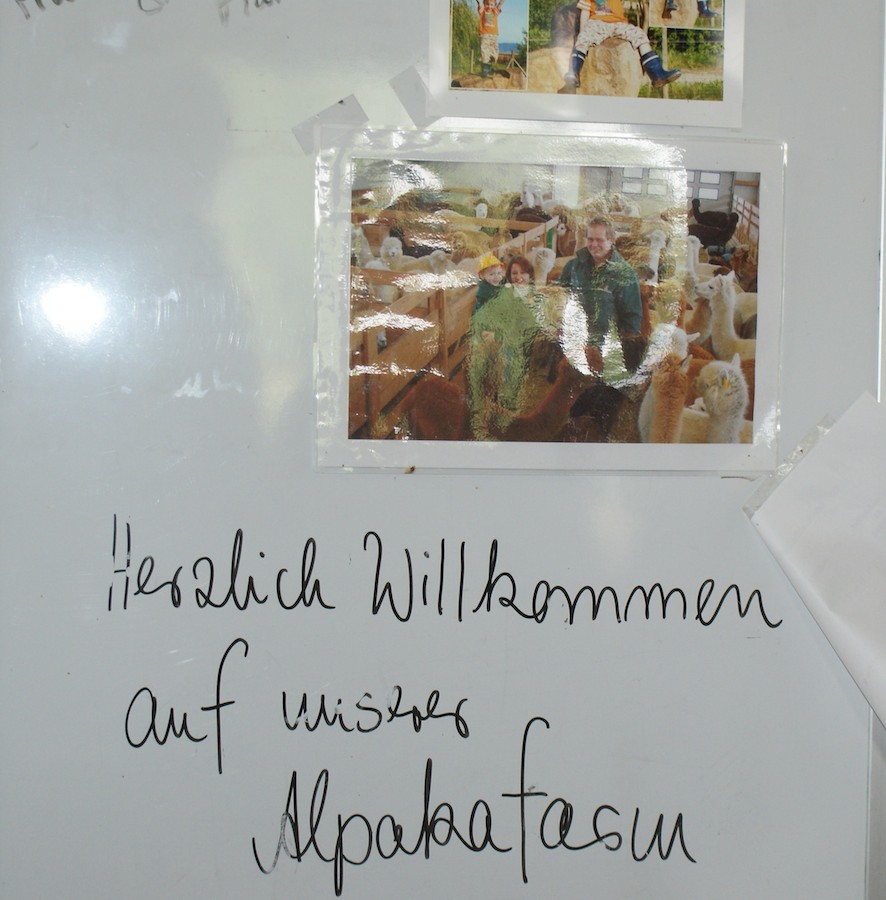 Herzlich Willkommen
auf unserer
Alpakafarm